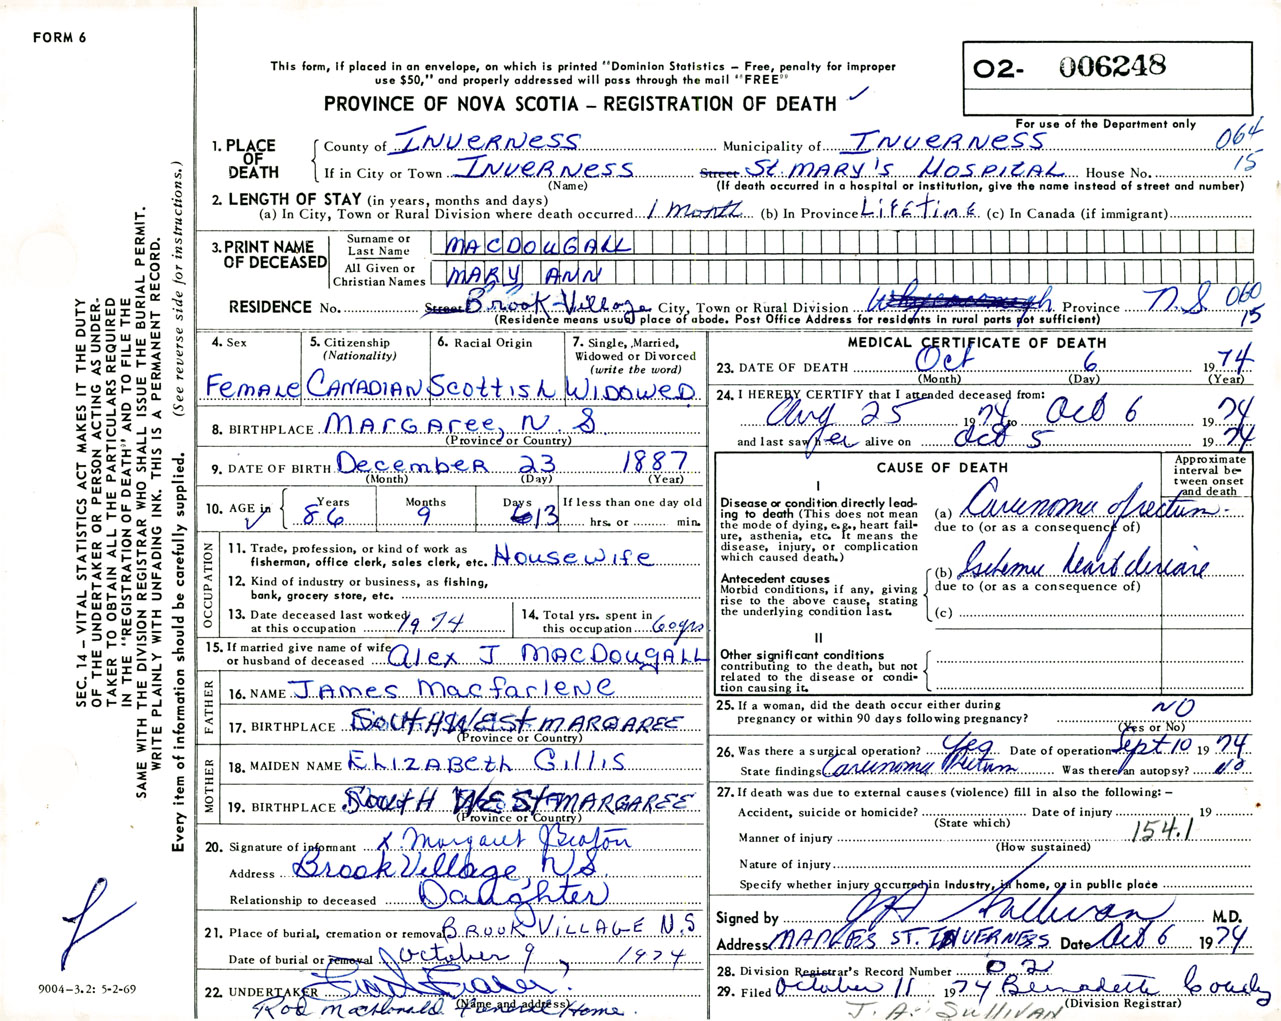 FORM 6
This form, if placed in an envelope, on which is printed "Dominion Statistics — Free, penalty for improper
use $50," and properly addressed will pass through the mail "FREE"
PROVINCE OF NOVA SCOTIA — REGISTRATION OF DEATH ✓
O2- 006248
For use of the Department only
064
15
1. PLACE OF DEATH
County of INVERNESS Municipality of INVERNESS
If in City or Town INVERNESS Street St MARY'S HOSPITAL House No.
(Name) (If death occurred in a hospital or institution, give the name instead of street and number)
2. LENGTH OF STAY (in years, months and days)
(a) In City, Town or Rural Division where death occurred 1 Month (b) In Province LIFETIME (c) In Canada (if immigrant)
3. PRINT NAME OF DECEASED
Surname or Last Name MACDOUGALL
All Given or Christian Names MARY ANN
RESIDENCE No. Street Brook Village City, Town or Rural Division Whycocomagh Province N.S. 060
15
(Residence means usual place of abode. Post Office Address for residents in rural parts not sufficient)
4. Sex
Female
5. Citizenship
(Nationality)
CANADIAN
6. Racial Origin
Scottish
7. Single, Married,
Widowed or Divorced
(write the word)
WIDOWED
8. BIRTHPLACE MARGAREE, N.S
(Province or Country)
9. DATE OF BIRTH December 23 1887
(Month) (Day) (Year)
10. AGE in ✓
Years 86
Months 9
Days 13
If less than one day old
hrs. or min.
OCCUPATION
11. Trade, profession, or kind of work as
fisherman, office clerk, sales clerk, etc. Housewife
12. Kind of industry or business, as fishing,
bank, grocery store, etc.
13. Date deceased last worked
at this occupation 1974
14. Total yrs. spent in
this occupation 60 yrs
15. If married give name of wife
or husband of deceased Alex J MACDOUGALL
FATHER
16. NAME JAMES Macfarlene
17. BIRTHPLACE SOUTHWEST MARGAREE
(Province or Country)
MOTHER
18. MAIDEN NAME ELIZABETH GILLIS
19. BIRTHPLACE SOUTH WEST MARGAREE
(Province or Country)
20. Signature of informant x Margaret J Beaton
Address Brook Village N.S.
Relationship to deceased Daughter
21. Place of burial, cremation or removal BROOK VILLAGE N.S
Date of burial or removal October 9, 1974
22. UNDERTAKER
(Name and address)
Rod MacDonald Funeral Home.
MEDICAL CERTIFICATE OF DEATH
23. DATE OF DEATH Oct 6 1974
(Month) (Day) (Year)
24. I HEREBY CERTIFY that I attended deceased from:
Aug 25 1974 to Oct 6 1974
and last saw her alive on Oct 5 1974
CAUSE OF DEATH
Approximate
interval be-
tween onset
and death
I
Disease or condition directly lead-
ing to death (This does not mean
the mode of dying, e.g., heart fail-
ure, asthenia, etc. It means the
disease, injury, or complication
which caused death.)
(a) Carcinoma of rectum
due to (or as a consequence of)
Antecedent causes
Morbid conditions, if any, giving
rise to the above cause, stating
the underlying condition last.
(b) Ischemic heart disease
due to (or as a consequence of)
(c)
II
Other significant conditions
contributing to the death, but not
related to the disease or condi-
tion causing it.
25. If a woman, did the death occur either during
pregnancy or within 90 days following pregnancy? NO
(Yes or No)
26. Was there a surgical operation? Yes Date of operation Sept 10 1974
State findings Carcinoma Rectum Was there an autopsy? NO
27. If death was due to external causes (violence) fill in also the following: —
Accident, suicide or homicide? Date of injury 19
(State which)
Manner of injury 154.1
(How sustained)
Nature of injury
Specify whether injury occurred in Industry, in home, or in public place
Signed by Sullivan M.D.
Address MAPLES ST. INVERNESS Date Oct 6 1974
28. Division Registrar's Record Number 02
29. Filed October 11 1974 Bernadette
(Division Registrar)
J. A. SULLIVAN
SEC. 14 — VITAL STATISTICS ACT MAKES IT THE DUTY
OF THE UNDERTAKER OR PERSON ACTING AS UNDER-
TAKER TO OBTAIN ALL THE PARTICULARS REQUIRED
IN THE "REGISTRATION OF DEATH" AND TO FILE THE
SAME WITH THE DIVISION REGISTRAR WHO SHALL ISSUE THE BURIAL PERMIT.
WRITE PLAINLY WITH UNFADING INK. THIS IS A PERMANENT RECORD.
Every item of information should be carefully supplied. (See reverse side for instructions.)
9004-3.2: 5-2-69